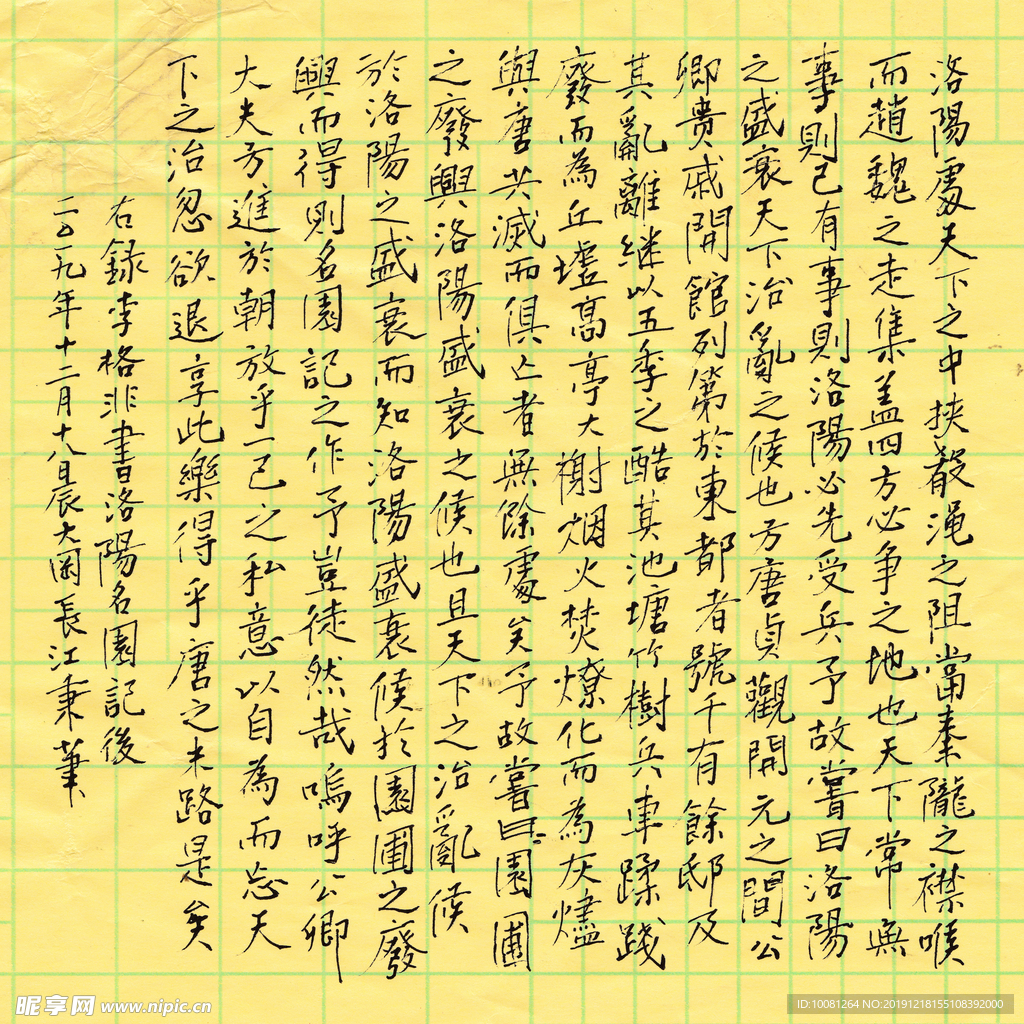 洛陽處天下之中挾殽渑之阻當秦隴之襟喉
而趙魏之走集蓋四方必争之地也天下常無
事則已有事則洛陽必先受兵予故嘗曰洛陽
之盛衰天下治亂之候也方唐貞觀開元之間公
卿贵戚開館列第於東都者號千有餘邸及
其亂離继以五季之酷其池塘竹樹兵車蹂践
廢而為丘墟高亭大榭烟火焚燎化而為灰燼
與唐共滅而俱亡者無餘處矣予故嘗曰園圃
之廢興洛陽盛衰之候也且天下之治亂候
於洛陽之盛衰而知洛陽盛衰候於園圃之廢
興而得則名園記之作予豈徒然哉嗚呼公卿
大夫方進於朝放乎一己之私意以自為而忘天
下之治忽欲退享此樂得乎唐之末路是矣
右録李格非書洛陽名園記後
二〇一九年十二月十八日辰大图長江秉筆
昵享网 www.nipic.cn
ID:10081264 NO:20191218155108392000